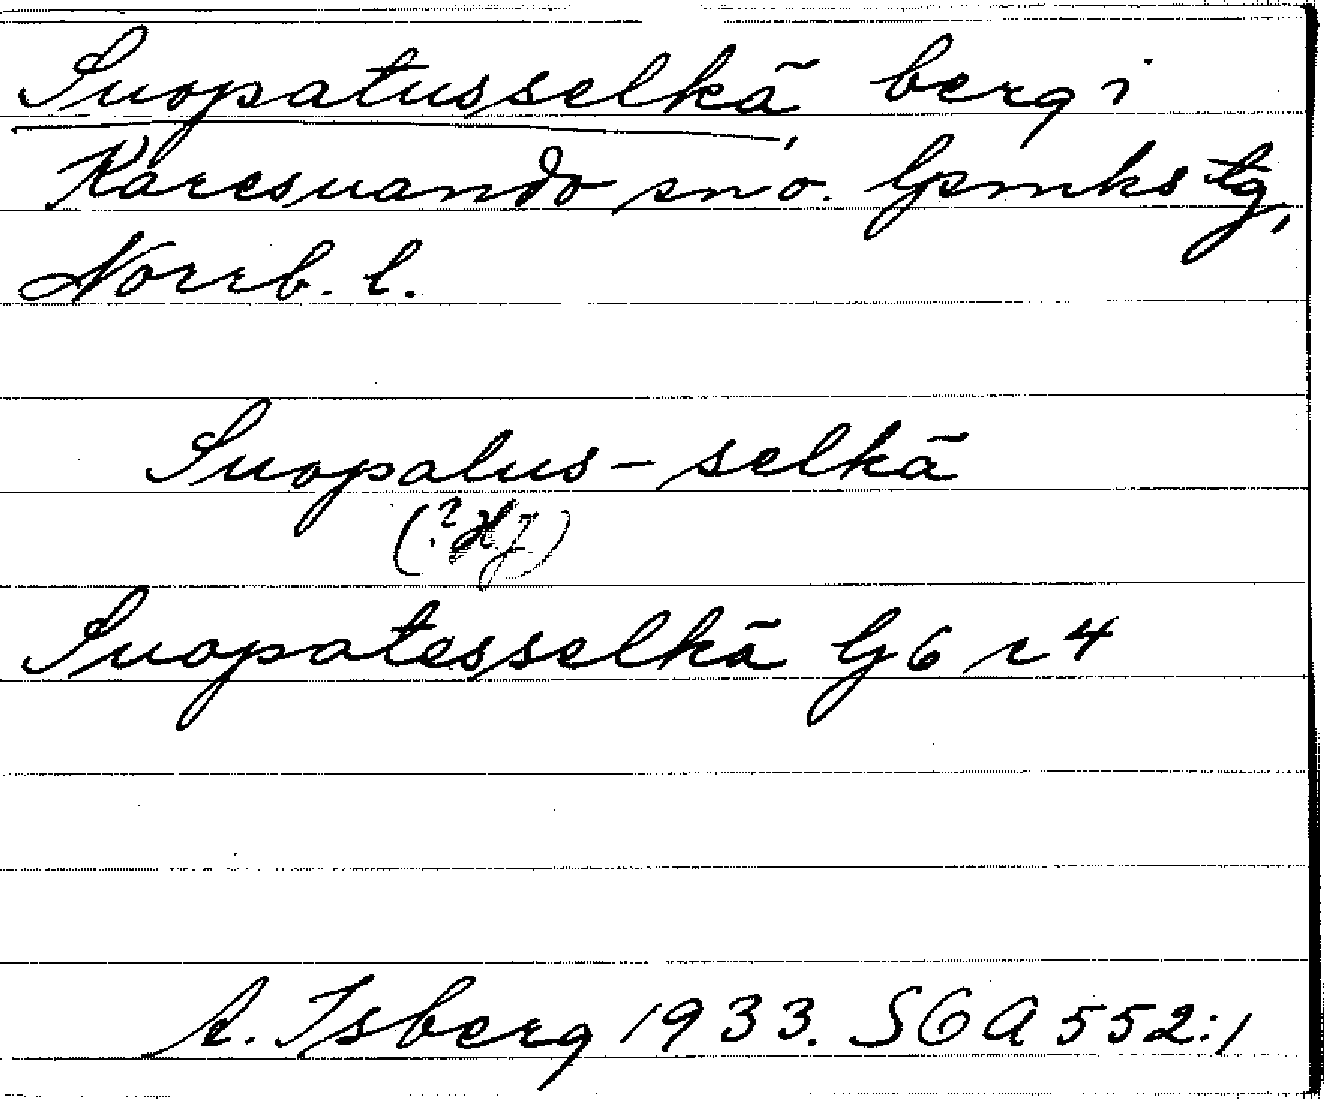 Suopatusselkä, berg i
Karesuando sn o. lpmks tg,
Norrb. l.
Suopalus-selkä
(? HJ)
Suopatesselkä lj 6 r 4
A. Isberg 1933. SGA 552:1